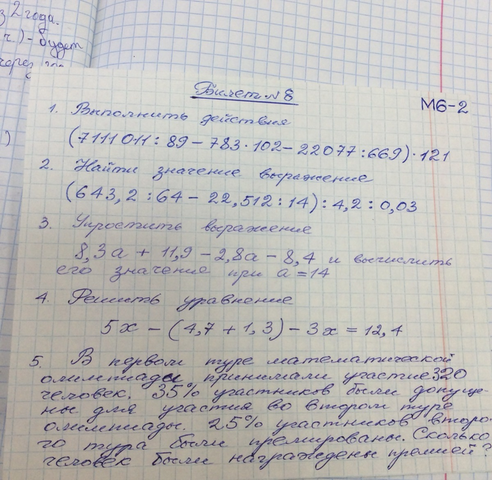 з 2 года.
ч) - будет
через
)
Билет № 8
М6-2
1. Выполнить действия
(7111011 : 89 - 783 · 102 - 22077 : 669) · 121
2. Найти значение выражение
(643,2 : 64 - 22,512 : 14) : 4,2 : 0,03
3. Упростить выражение
8,3а + 11,9 - 2,8а - 8,4 и вычислить
его значение при а = 14
4. Решить уравнение
5х - (4,7 + 1,3) - 3х = 12,4
5. В первом туре математической
олимпиады принимали участие 320
человек. 35% участников были допуще-
ны для участия во втором туре
олимпиады. 25% участников второ-
го тура были премированы. Сколько
человек были награждены премией?